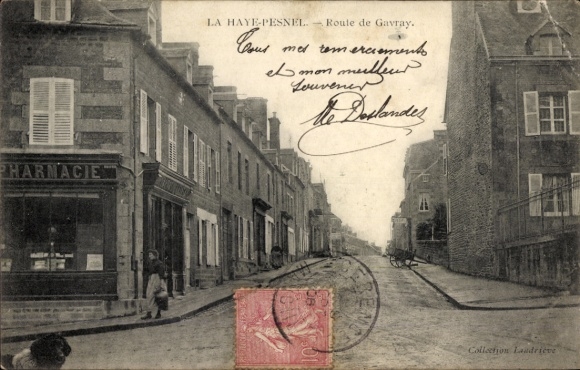 LA HAYE-PESNEL. — Route de Gavray.
Tous mes remerciements
et mon meilleur
souvenir
Deslandes
PHARMACIE
Collection